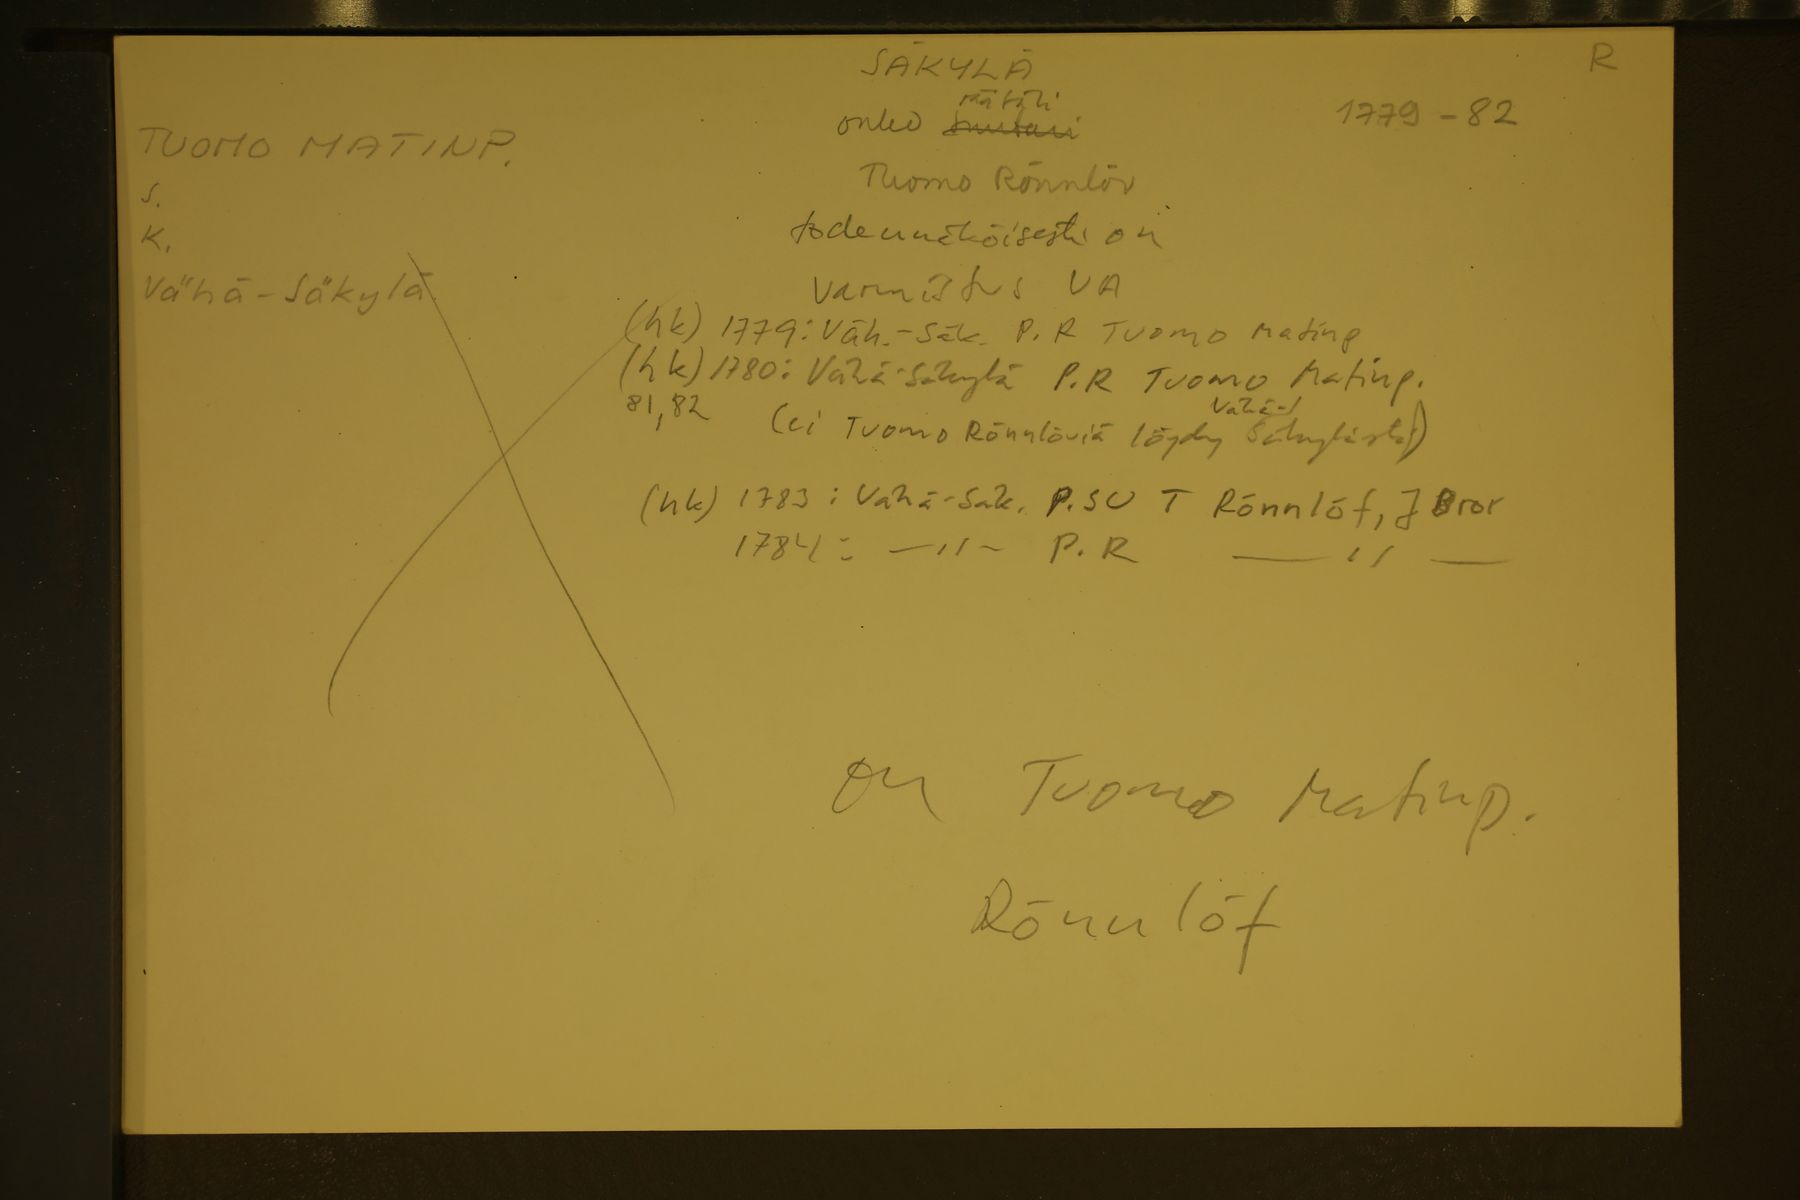 SÄKYLÄ
R
onko räätäli
1779-82
TUOMO MATINP.
Tuomo Rönnlöv
S.
todennäköisesti on
K.
Vähä-Säkylä
varmistus VA
(hk) 1779: Väh.-Säk. P.R Tuomo Matinp
(hk) 1780: Vähä-Säkylä P.R Tuomo Matinp.
81, 82 (ei Tuomo Rönnlöviä löydy Vähä-Säkylästä)
(hk) 1783: Vähä-Säk. P.SU T Rönnlöf, J Bror
1784: —"— P.R —"—
on Tuomo Matinp.
Rönnlöf